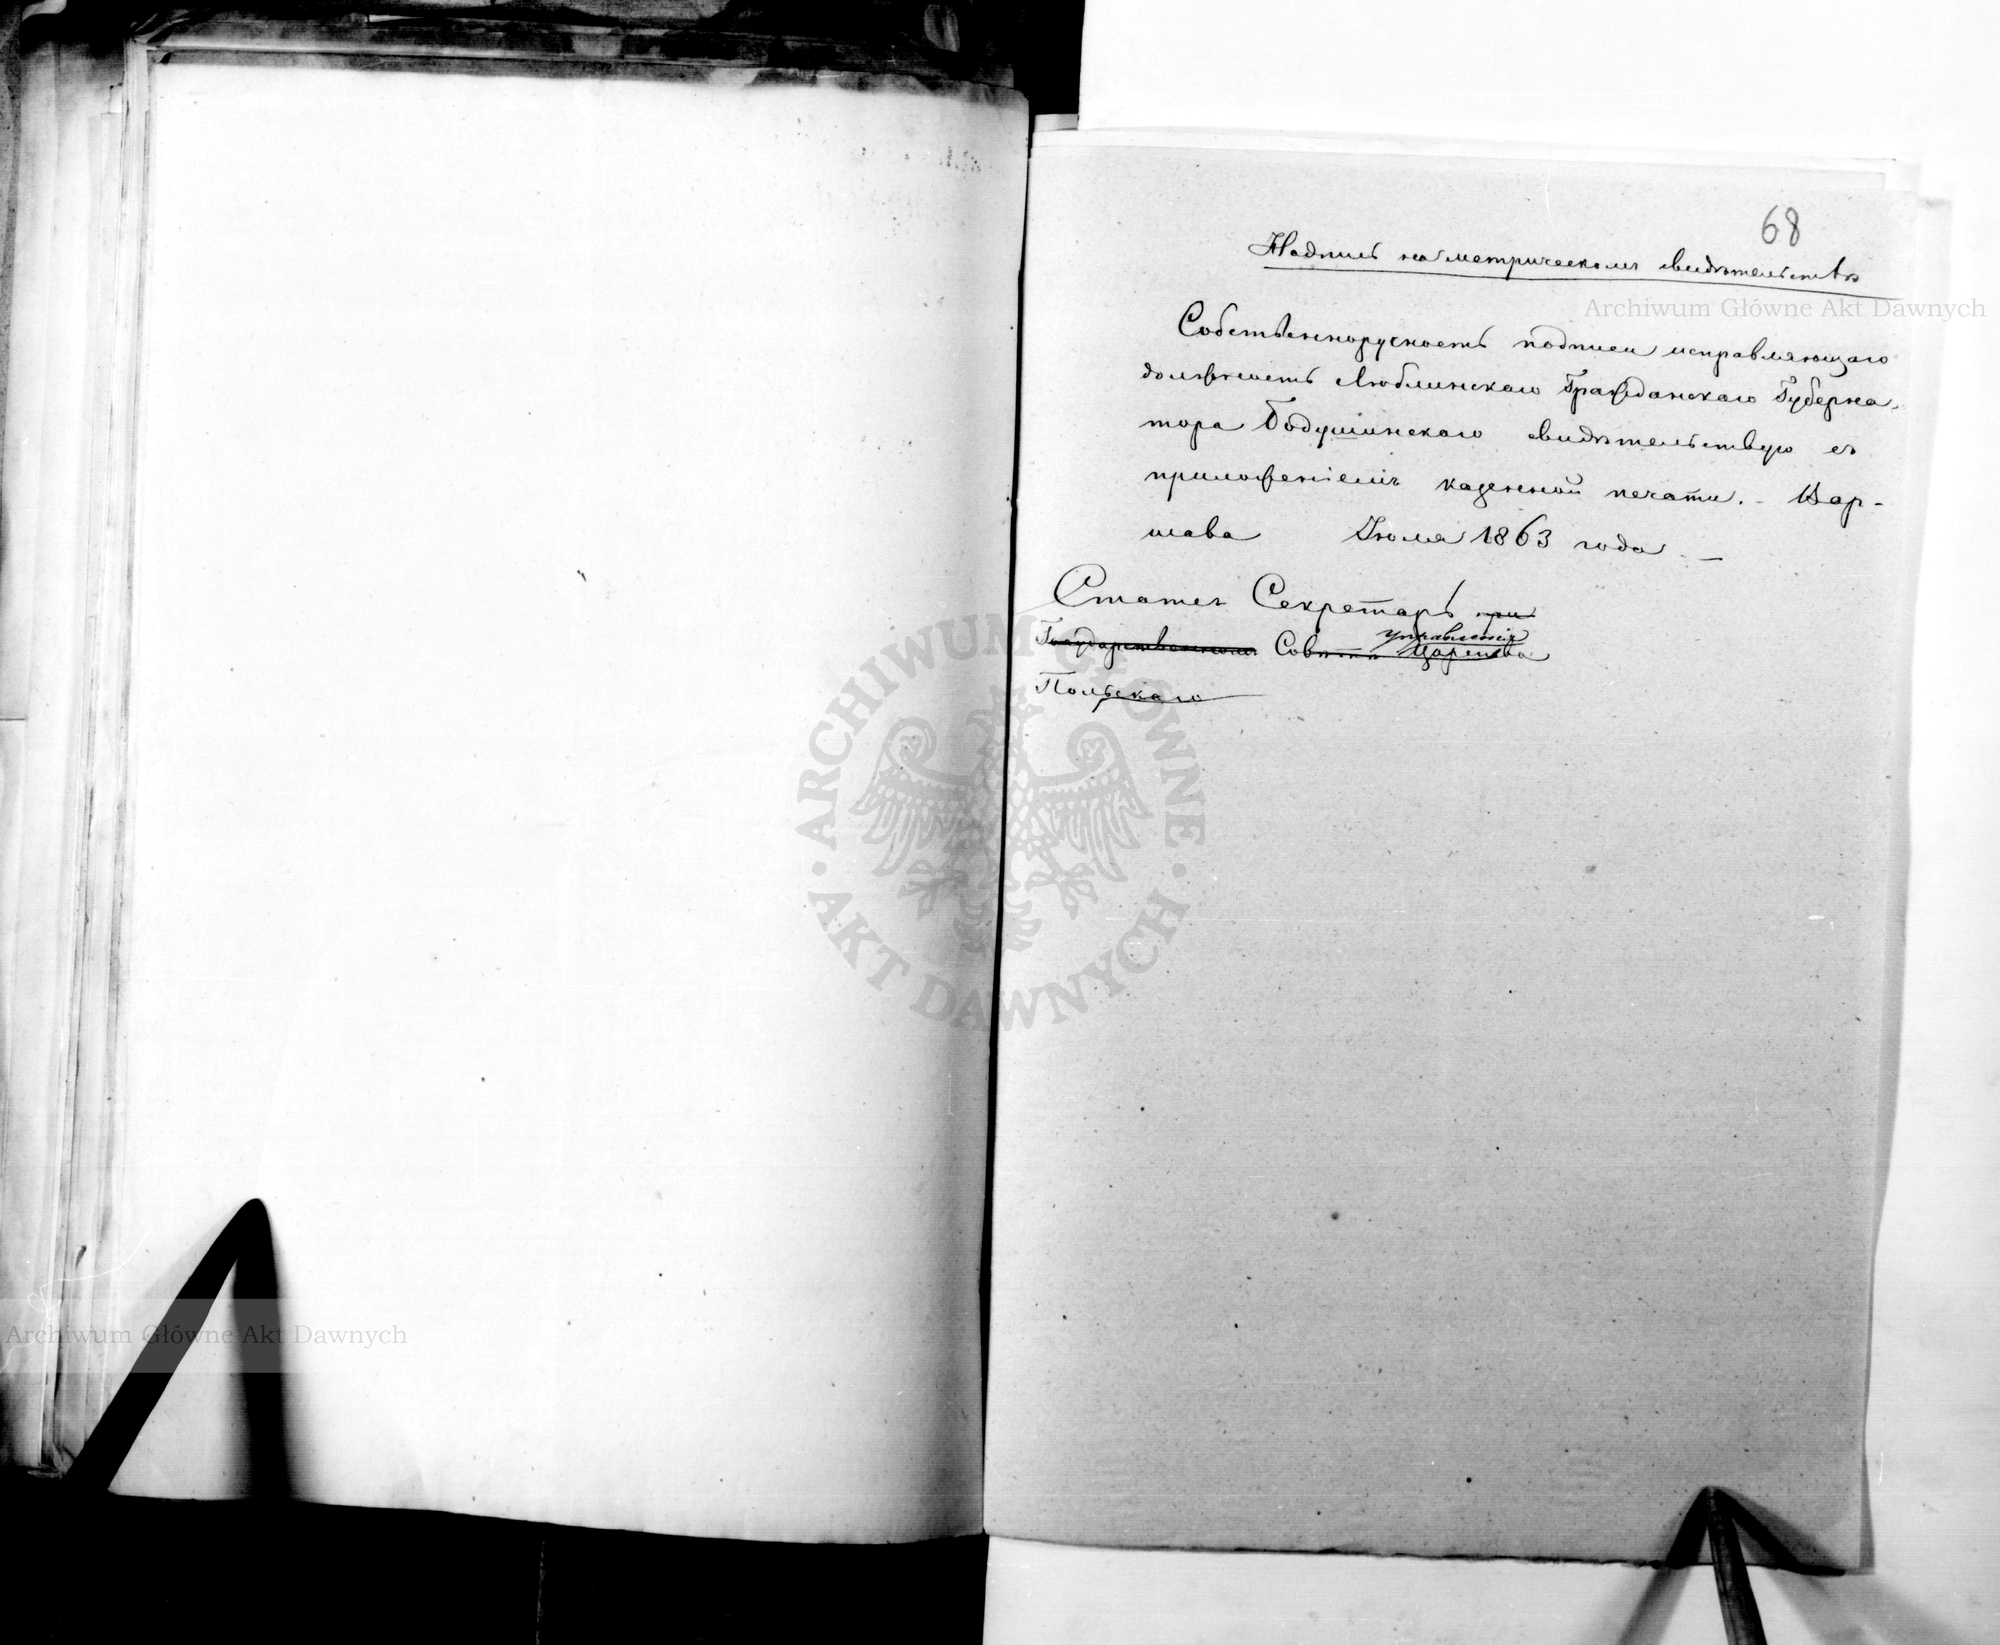 68
Надпись на метрическомъ свидѣтельствѣ
Собственноручность подписи исправляющаго
должность Люблинскаго Гражданскаго Губерна-
тора Бодушинскаго свидѣтельствую съ
приложеніемъ казенной печати. - Вар-
шава Іюля 1863 года. —
Статсъ Секретарь при
управленія
Государственномъ Совѣтѣ Царства
Польскаго
Archiwum Główne Akt Dawnych
ARCHIWUM GŁÓWNE · AKT DAWNYCH ·
Archiwum Główne Akt Dawnych